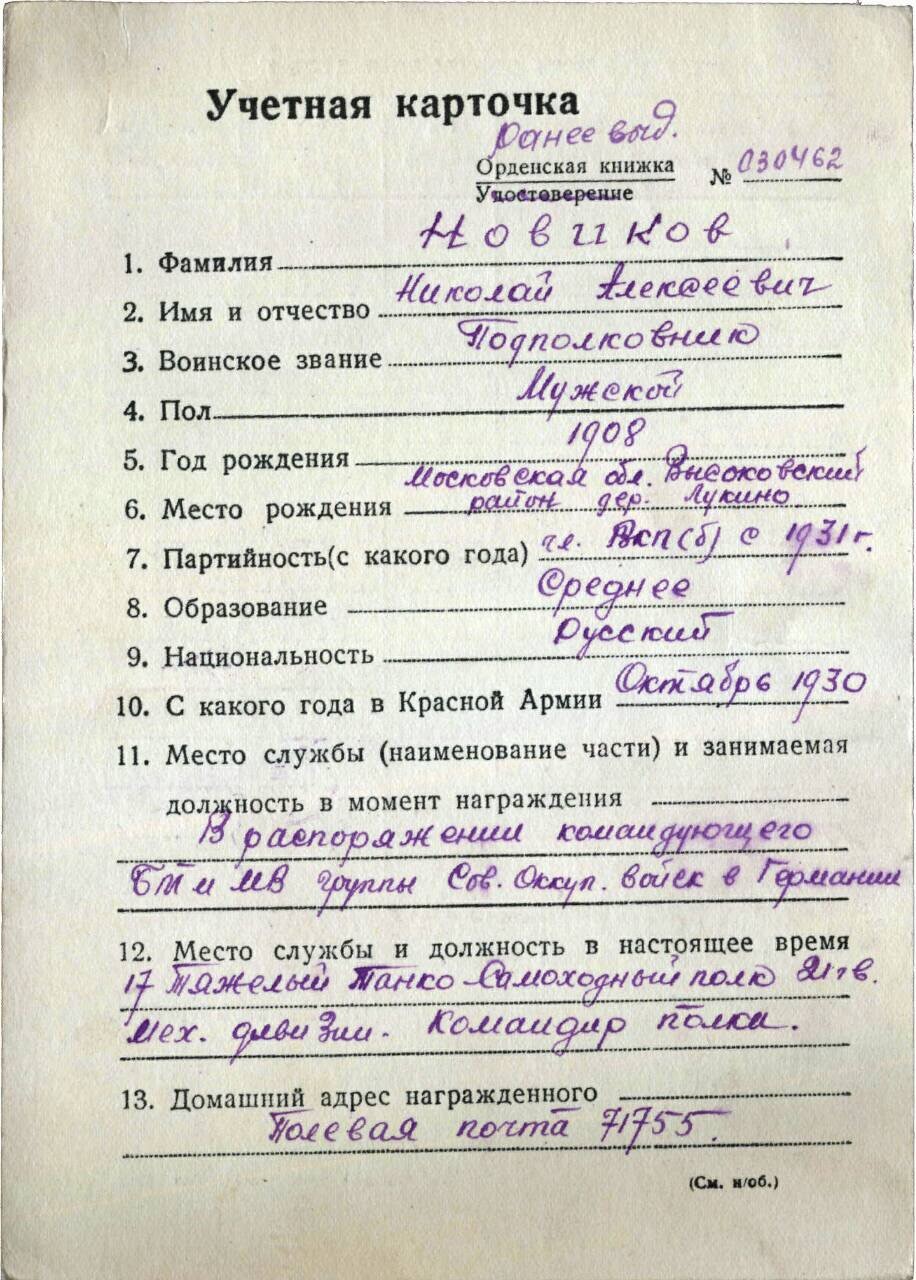 Учетная карточка
Ранее выд.
Орденская книжка № 030462
Удостоверение
1. Фамилия Новиков
2. Имя и отчество Николай Алексеевич
3. Воинское звание Подполковник
4. Пол Мужской
5. Год рождения 1908
Московская обл. Высоковский
6. Место рождения район дер. Лукино
7. Партийность(с какого года) чл. ВКП(б) с 1931 г.
8. Образование Среднее
9. Национальность Русский
10. С какого года в Красной Армии Октябрь 1930
11. Место службы (наименование части) и занимаемая
должность в момент награждения
В распоряжении командующего
БТ и МВ группы Сов. Оккуп. войск в Германии
12. Место службы и должность в настоящее время
17 Тяжелый Танко-Самоходный полк 21 гв.
Мех. дивизии. Командир полка.
13. Домашний адрес награжденного
Полевая почта 71755.
(См. н/об.)